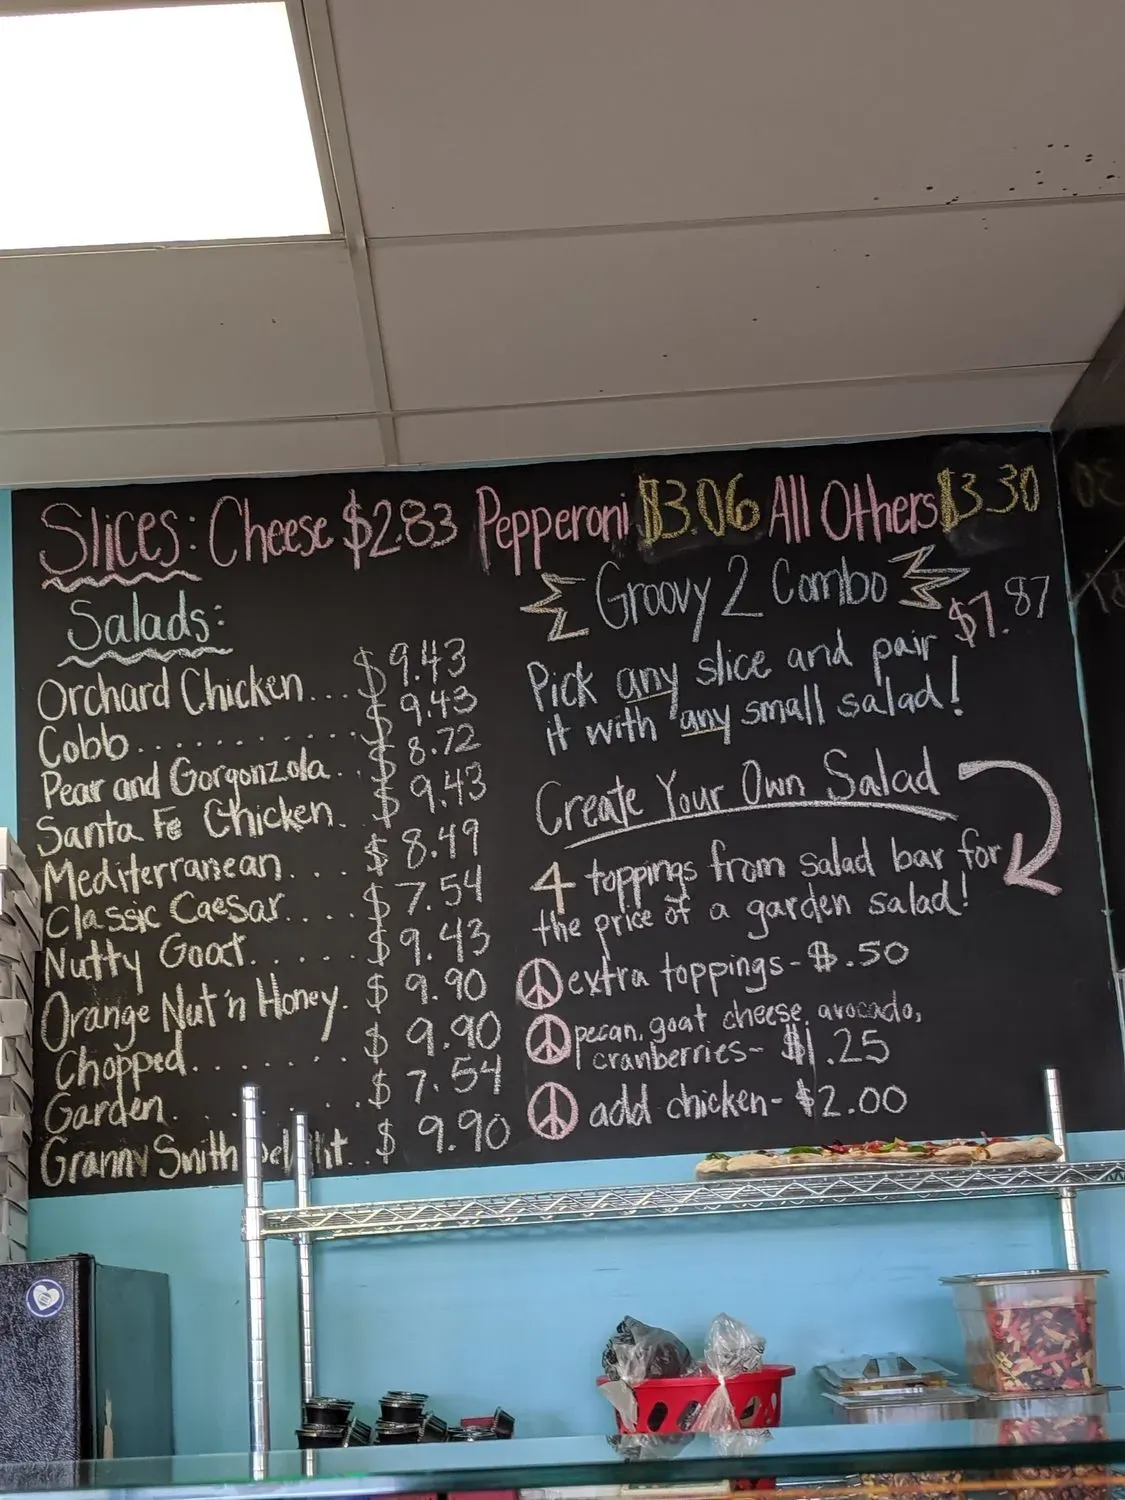 Slices: Cheese $2.83 Pepperoni $3.06 All Others $3.30
Salads:
Orchard Chicken... $9.43
Cobb........... $9.43
Pear and Gorgonzola.. $8.72
Santa Fe Chicken. $9.43
Mediterranean... $8.49
Classic Caesar.... $7.54
Nutty Goat...... $9.43
Orange Nut 'n Honey. $9.90
Chopped....... $9.90
Garden........ $7.54
Granny Smith .. $9.90
Groovy 2 Combo
$7.87
Pick any slice and pair
it with any small salad!
Create Your Own Salad
4 toppings from salad bar for
the price of a garden salad!
extra toppings - $.50
pecan, goat cheese, avocado,
cranberries - $1.25
add chicken - $2.00